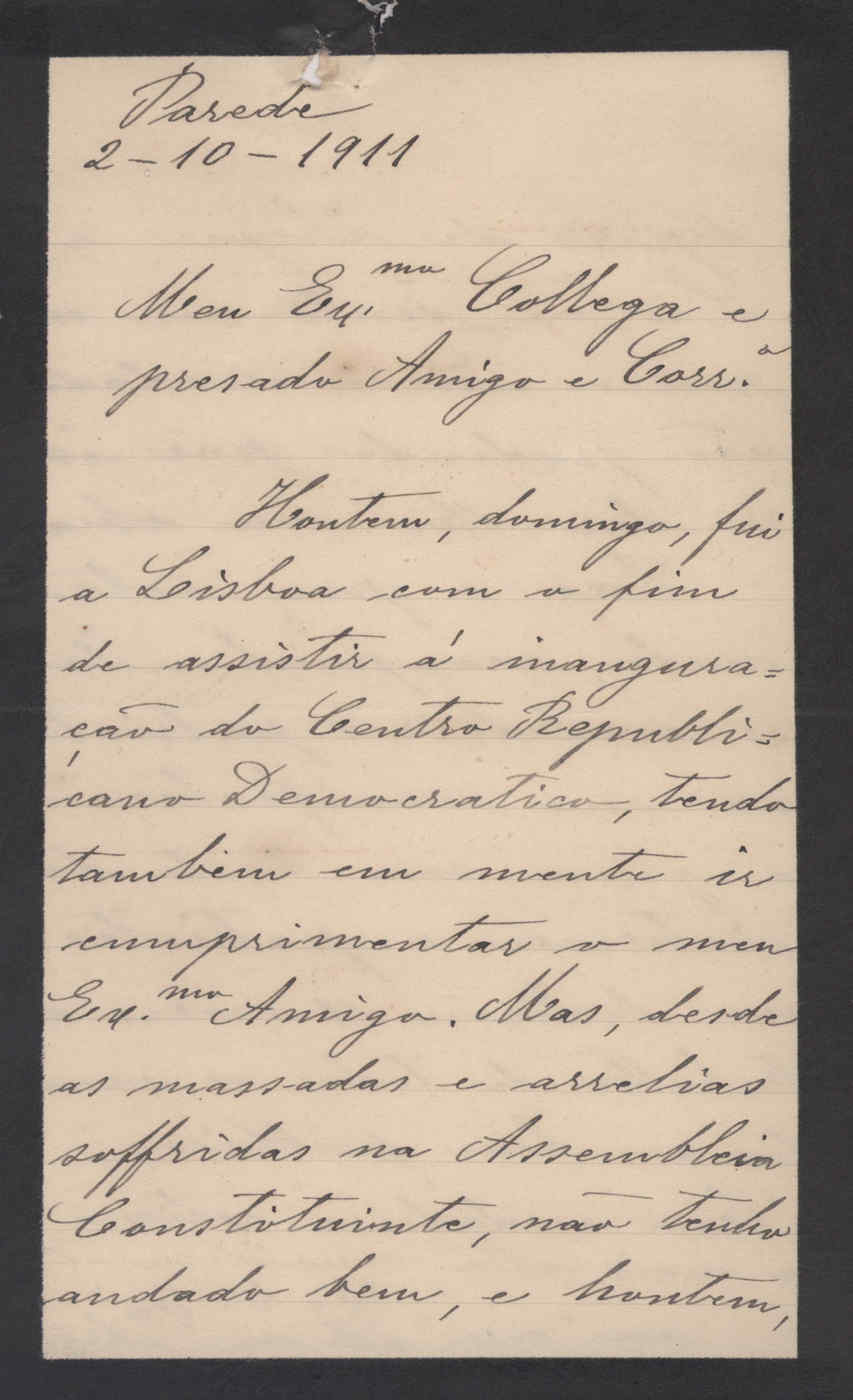 Parede
2-10-1911
Meu Ex.mo Collega e
presado Amigo e Corr.o
Hontem, domingo, fui
a Lisboa com o fim
de assistir á inaugura=
ção do Centro Republi=
cano Democratico, tendo
tambêm em mente ir
cumprimentar o meu
Ex.mo Amigo. Mas, desde
as massadas e arrelias
soffridas na Assembleia
Constituinte, não tenho
andado bem, e hontem,